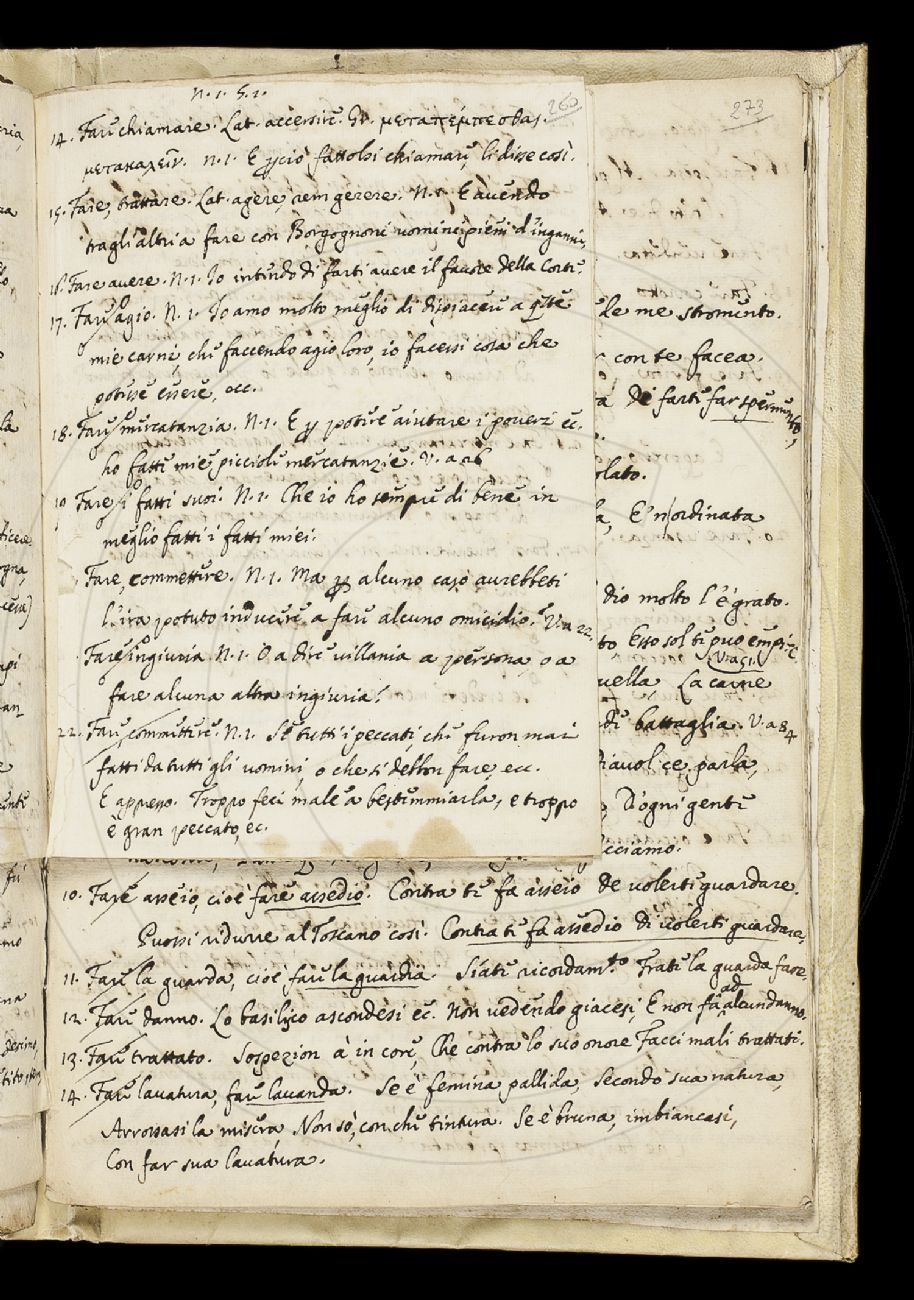 N. 1. G. 1.
260
273
14. Fare chiamare. Lat. accersire. Gr. μεταπέμπεσθαι.
μετακαλεῖν. N. 1. E ꝑ ciò fattolsi chiamare, li disse così.
15. Fare, trattare. Lat. agere, rem gerere. N. 1. E avendo
tragli altri a fare con Borgognoni uomini pieni d'inganni,
16. Fare avere. N. 1. Io intendo di farti avere il favore della Corte.
17. Fare agio. N. 1. Io amo molto meglio di dispiacere a qste
mie carni, che faccendo agio loro, io facessi cosa che
potesse essere, ecc.
18. Fare mercatanzia. N. 1. E ꝑ potere aiutare i poveri ec.
ho fatte mie picciole mercatanzie. V. a 26
19 Fare i fatti suoi. N. 1. Che io ho sempre di bene in
meglio fatti i fatti miei.
Fare, commettere. N. 1. Ma ꝑ alcuno caso avrebbeti
l'ira potuto inducere a fare alcuno omicidio. V. a 22.
Fare ingiuria. N. 1. O a dire villania a persona, o a
fare alcuna altra ingiuria?
22. Fare, committere. N. 1. Se tutti i peccati, che furon mai
fatti da tutti gli uomini, o che si debbon fare, ecc.
E appresso. Troppo feci male a bestemmiarla, e troppo
è gran peccato, ec.
le me stromento.
con te facea.
a De farti far spermento,
olato.
a, E' n'ordinata
dio molto l'è grato.
to, Esso sol ti puo empire
V. a 51.
uella, La carne
di battaglia. V. a 84
iavol ce parla,
, D'ogni gente
cciamo.
10. Fare asseio, cioè fare assedio. Contra te fa asseio De volerti guardare.
Puossi ridurre al Toscano così. Contra te fa assedio di volerti guardare,
11. Fare la guarda, cioè fare la guardia. Siate ricordam.to Frate la guarda fare.
12. Fare danno. Lo basilico ascondesi ec. Non vedendo giacesi, E non fa ad alcun danno.
13. Fare trattato. Sospezion à in core, Che contra lo suo onore Facci mali trattati.
14. Fare lavatura, fare lavanda. Se è femina pallida, Secondo sua natura,
Arrossasi la misera, Non sò, con che tintura. Se è bruna, imbiancasi,
Con far sua lavatura.